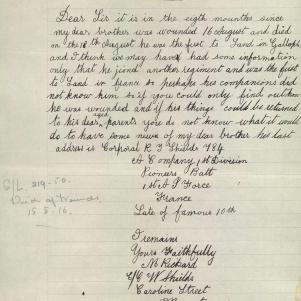 Dear Sir it is in the eigth mounths since
my dear brother was wounded 16 August and died
on the 18th August he was the first to Land in Gallopli
and I think we may have had some information
only that he jined another regiment and was the first
to Land in France so prehaps his companions did
not know him so if you could only find out how
he was wounded and if his things could be returned
to his dear aged parents you do not know what it would
do to have some news of my dear brother his last
address is Corporal R J Shields 784
A Company 1st Division
Pioneers Batt
1st A I Force
France
Late of famous 10th
I remain
Yours Faithfully
M Rickard
C/o W Shields
Caroline Street
219-50.
Died of Wounds
16.